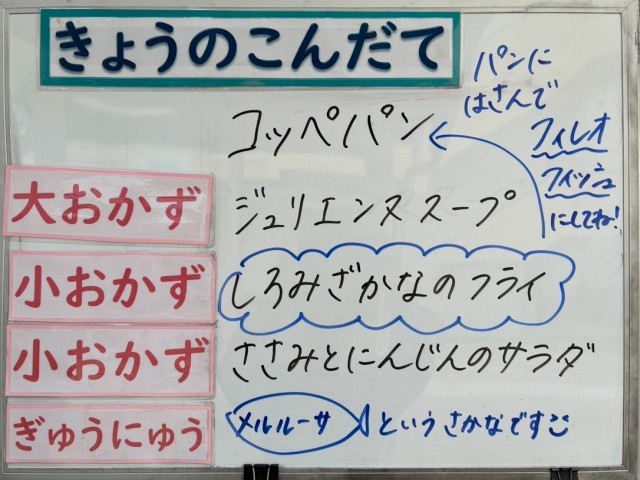 きょうのこんだて
パンに
はさんで
フィレオ
フィッシュ
にしてね!
コッペパン
大おかず
ジュリエンヌスープ
小おかず
しろみざかなのフライ
小おかず
ささみとにんじんのサラダ
ぎゅうにゅう
メルルーサ というさかなです